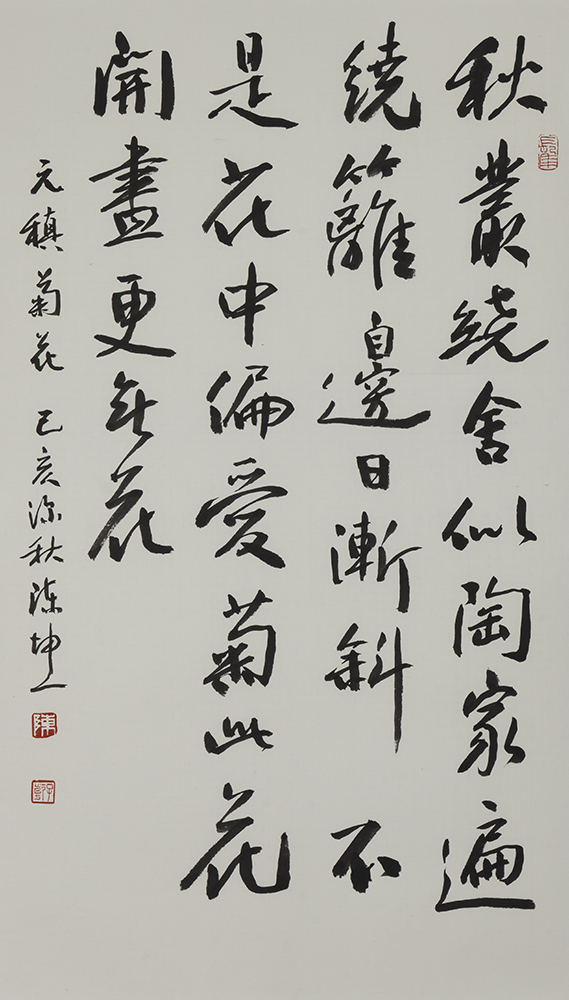 秋叢繞舍似陶家遍
繞籬邊日漸斜不
是花中偏愛菊此花
開盡更無花
元稹菊花 己亥深秋陳坤一
陳